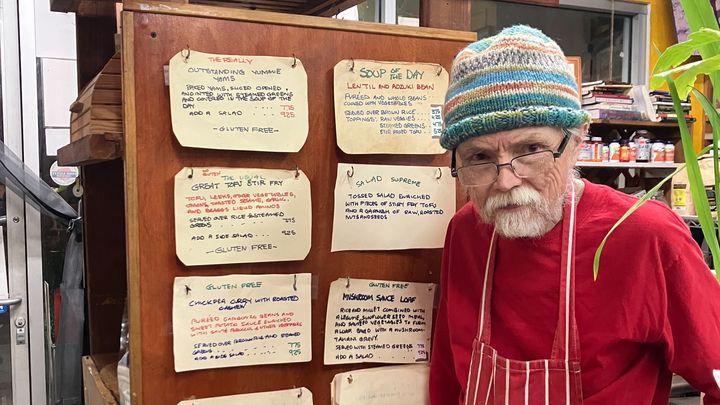 THE REALLY
OUTSTANDING YUMMIE
YAMS
BAKED YAMS, SLICED OPENED,
ANOINTED WITH STEAMED GREENS
AND COVERED IN THE SOUP OF THE
DAY 7.75
ADD A SALAD 9.25
-GLUTEN FREE-
SOUP OF THE DAY
LENTIL AND ADZUKI BEAN
PUREED AND WHOLE BEANS
COOKED WITH VEGETABLES
SERVED OVER BROWN RICE
TOPPINGS: RAW VEGGIES
STEAMED GREENS
STIR FRIED TOFU
GLUTEN THE USUAL
GREAT TOFU STIR FRY
TOFU, LEEKS, OTHER VEGETABLES,
ONIONS, TOASTED SESAME, GARLIC,
AND BRAGGS LIQUID AMINOS
SERVED OVER RICE & STEAMED
GREENS 7.75
ADD A SIDE SALAD 9.25
-GLUTEN FREE-
SALAD SUPREME
TOSSED SALAD ENRICHED
WITH PIECES OF STIR FRY TOFU
AND A GARNISH OF RAW, ROASTED
NUTS AND SEEDS
GLUTEN FREE
CHICKPEA CURRY WITH ROASTED
CASHEW
PUREED GARBANZO BEANS AND
SWEET POTATO SAUCE ENRICHED
WITH
SERVED OVER BROWN RICE AND STEAMED
GREENS 7.75
ADD A SIDE SALAD 9.25
GLUTEN FREE
MUSHROOM SAUCE LOAF
RICE AND MILLET COMBINED WITH
ALMOND, SUNFLOWER SEED MEAL,
AND SAUTEED VEGETABLES TO FORM
A LOAF BAKED WITH A MUSHROOM-
TAHINI GRAVY.
SERVED WITH STEAMED GREENS 7.75
ADD A SALAD 9.25